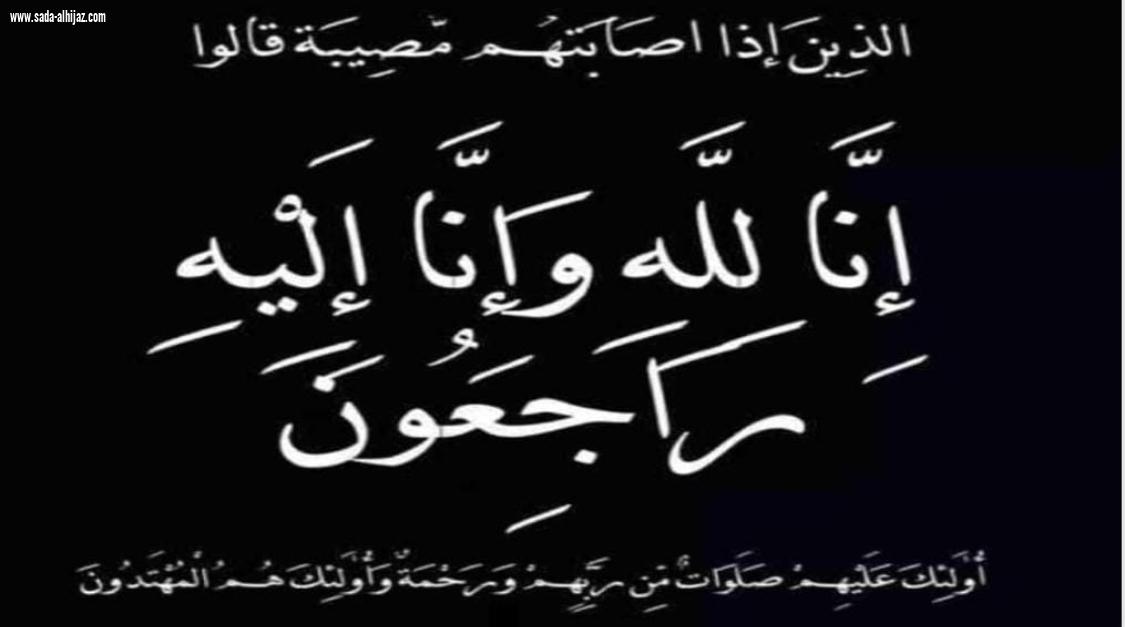 www.sada-alhijaz.com
الذِينَ إذا اصَابَتهُم مّصِيبَة قالوا
إِنَّا للَّه وَإِنَّا إِلَيْهِ
رَاجِعَُونَ
أُوَلَئِكَ عَلَيهِمْ صَلَوَاتٌ مّن رَبِّهِمْ وَرَحْمَةٌ وَأُولَئِكَ هُمُ الْمُهْتَدُونَ